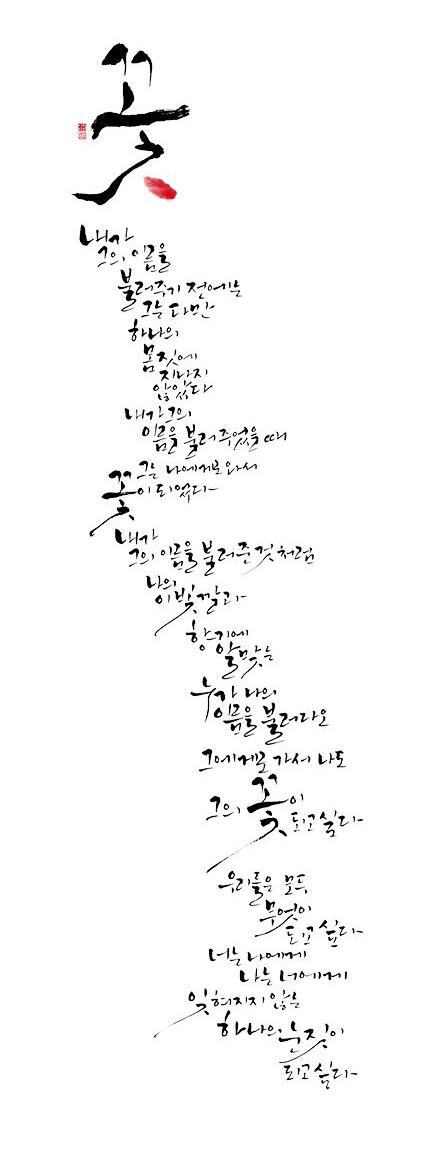 꽃
내가
그의 이름을
불러주기 전에는
그는 다만
하나의
몸짓에
지나지
않았다
내가 그의
이름을 불러 주었을 때
그는 나에게로 와서
꽃이 되었다
내가
그의 이름을 불러준 것처럼
나의
이 빛깔과
향기에
알맞는
누가 나의
이름을 불러다오
그에게로 가서 나도
그의 꽃이
되고 싶다
우리들은 모두
무엇이
되고 싶다
너는 나에게
나는 너에게
잊혀지지 않는
하나의 눈짓이
되고 싶다